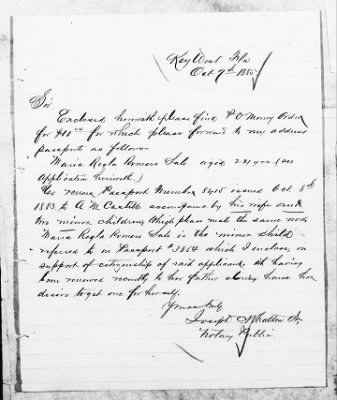 Key West Fla
Oct 9th 1885
Sir
Enclosed herewith please find P O Money Order
for $10 00 for which please forward to my address
passports as follows
Maria Regla Romero Salo aged 22 yrs (see
application herewith.)
Also renew Passport Number 8415 issued Oct 8th
1883 to A M Castillo accompanied by his wife and
two minor children Which please make the same now
Maria Regla Romero Salo is the minor child
referred to in Passport #3854 which I enclose in
support of citizenship of said applicant it having
been renewed recently to her father alone, hence her
desire to get one for herself.
Yours truly
Joseph
Notary Public